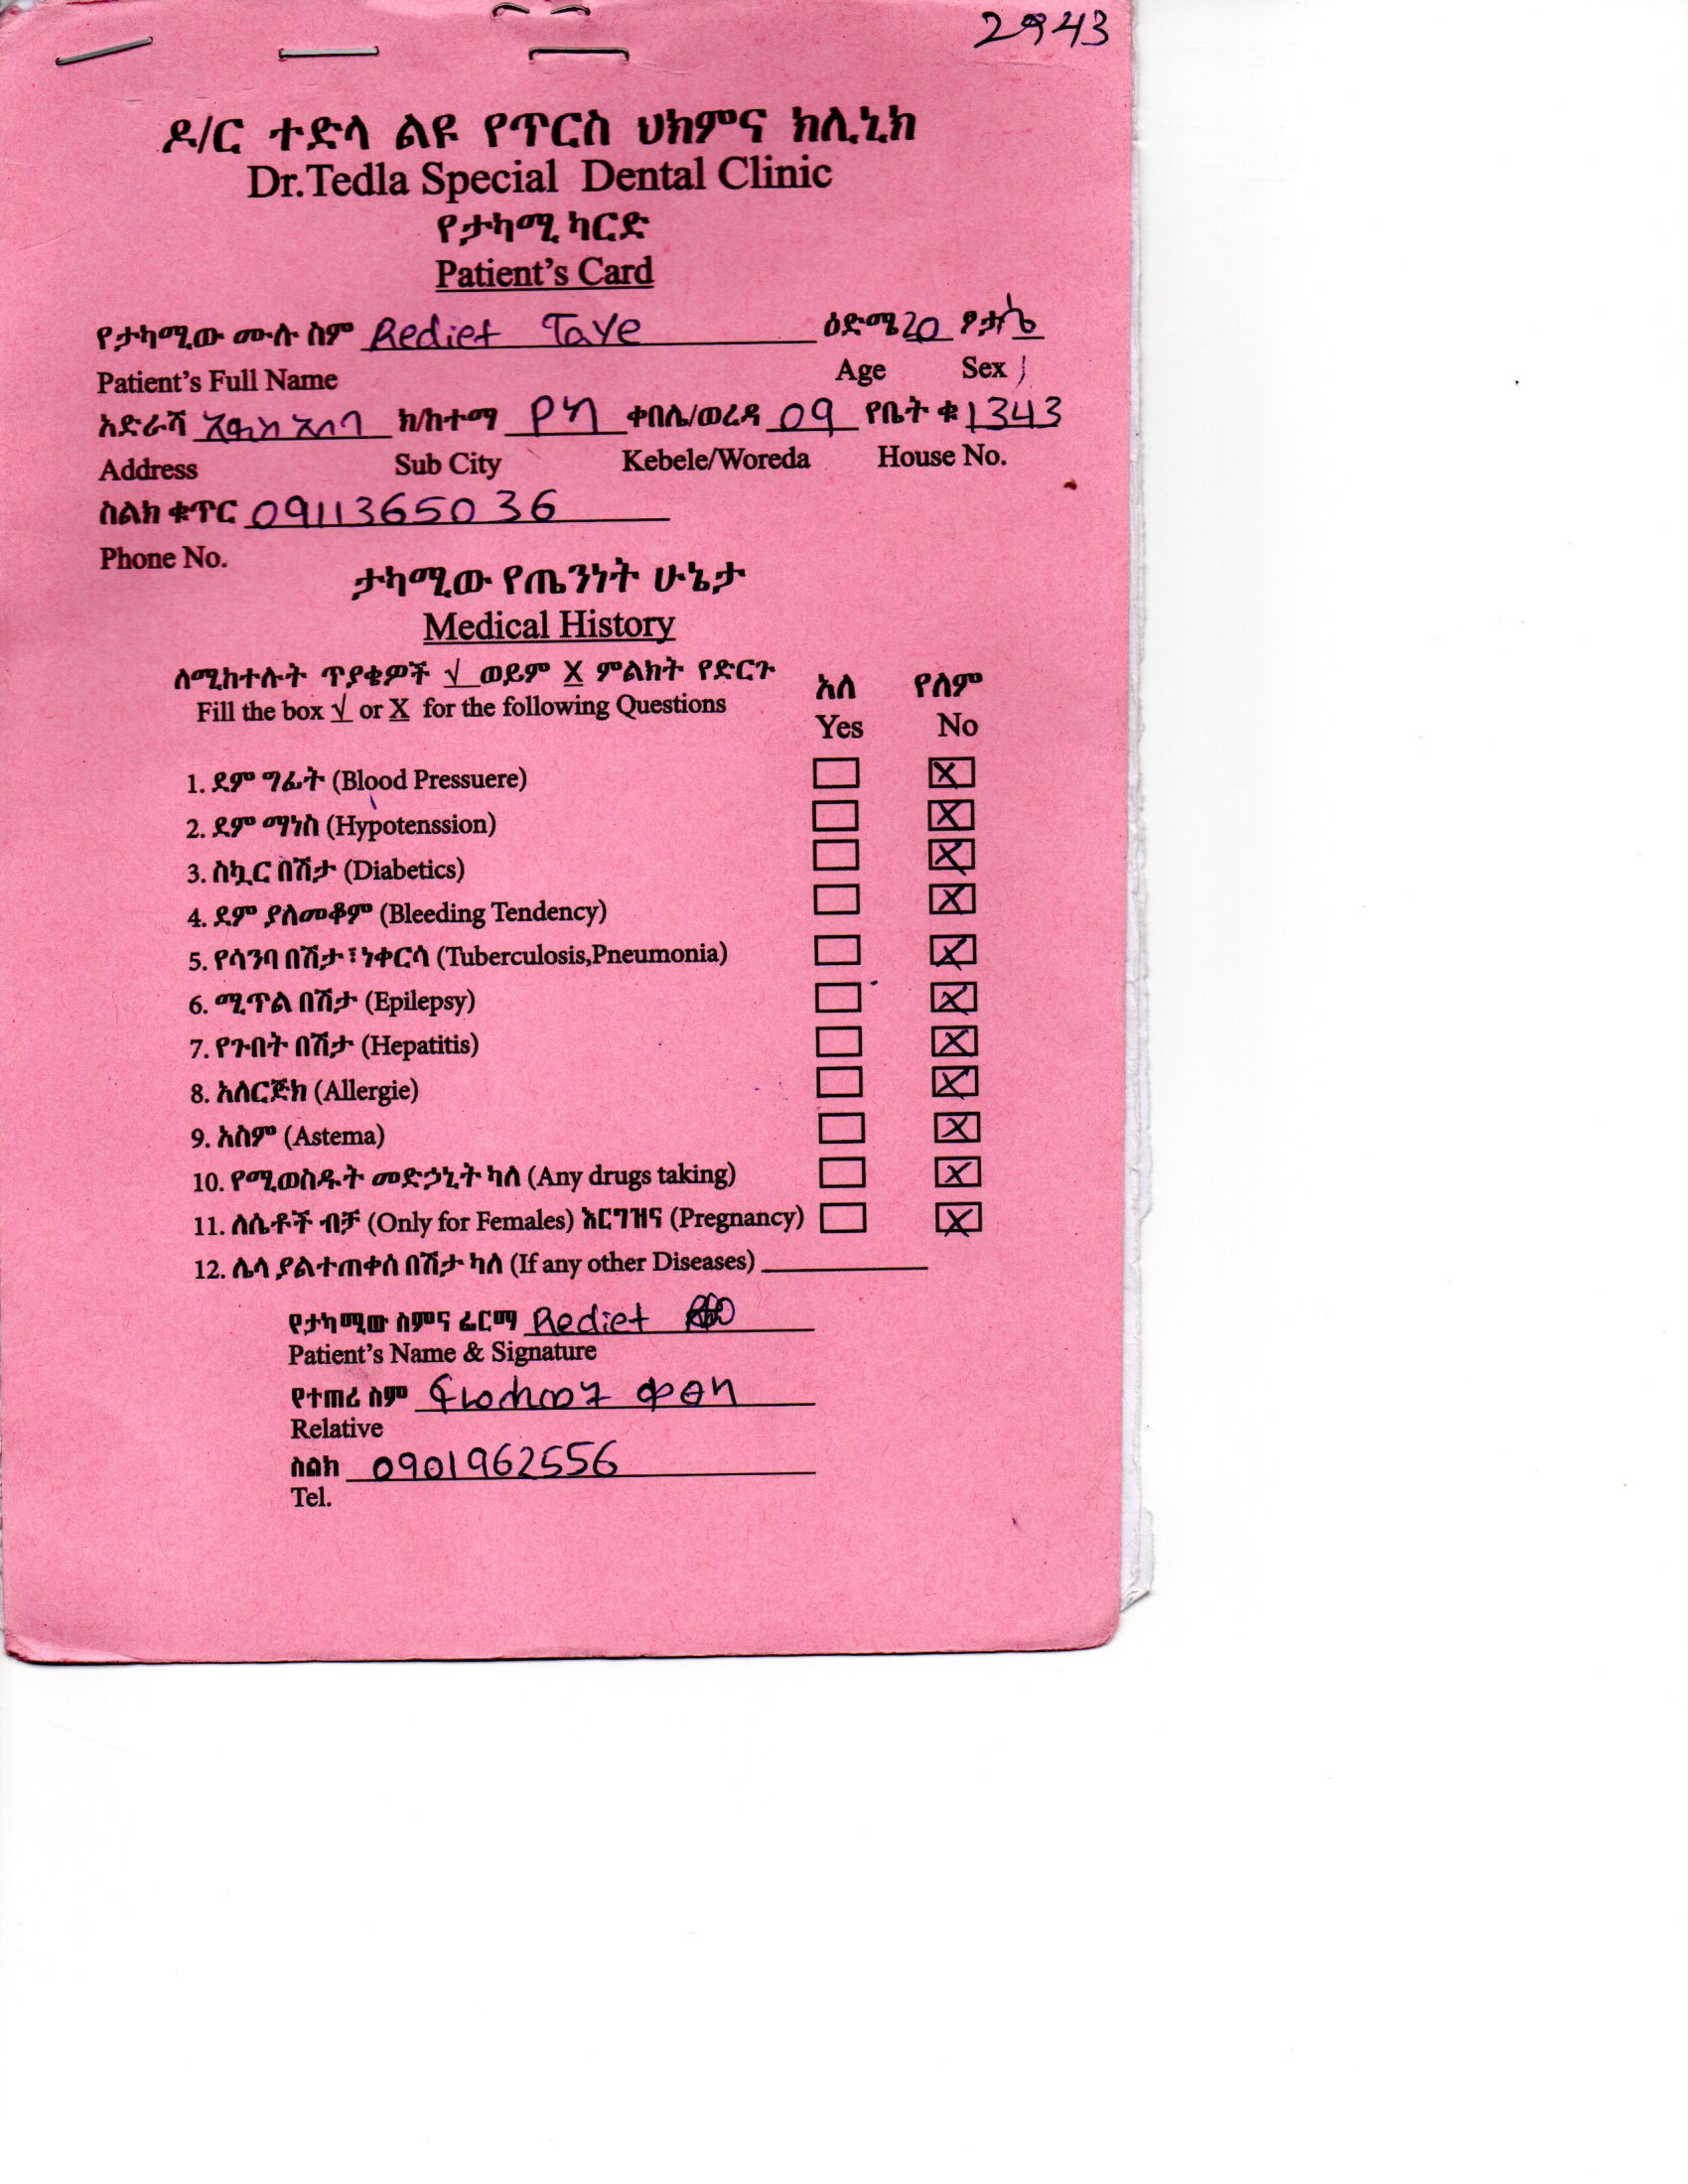 2943
ዶ/ር ተድላ ልዩ የጥርስ ህክምና ክሊኒክ
Dr.Tedla Special Dental Clinic
የታካሚ ካርድ
Patient's Card
የታካሚው ሙሉ ስም Rediet Taye ዕድሜ 20 ፆታ ሴ
Patient's Full Name Age Sex
አድራሻ አዲስ አበባ ክ/ከተማ የካ ቀበሌ/ወረዳ 09 የቤት ቁ 1343
Address Sub City Kebele/Woreda House No.
ስልክ ቁጥር 0911365036
Phone No.
ታካሚው የጤንነት ሁኔታ
Medical History
ለሚከተሉት ጥያቄዎች √ ወይም X ምልክት የድርጉ አለ የለም
Fill the box √ or X for the following Questions Yes No
1. ደም ግፊት (Blood Pressuere) X
2. ደም ማነስ (Hypotenssion) X
3. ስኳር በሽታ (Diabetics) X
4. ደም ያለመቆም (Bleeding Tendency) X
5. የሳንባ በሽታ፣ ነቀርሳ (Tuberculosis,Pneumonia) X
6. ሚጥል በሽታ (Epilepsy) X
7. የጉበት በሽታ (Hepatitis) X
8. አለርጅክ (Allergie) X
9. አስም (Astema) X
10. የሚወስዱት መድኃኒት ካለ (Any drugs taking) X
11. ለሴቶች ብቻ (Only for Females) እርግዝና (Pregnancy) X
12. ሌላ ያልተጠቀሰ በሽታ ካለ (If any other Diseases)
የታካሚው ስምና ፊርማ Rediet
Patient's Name & Signature
የተጠሪ ስም
Relative
ስልክ 0901962556
Tel.